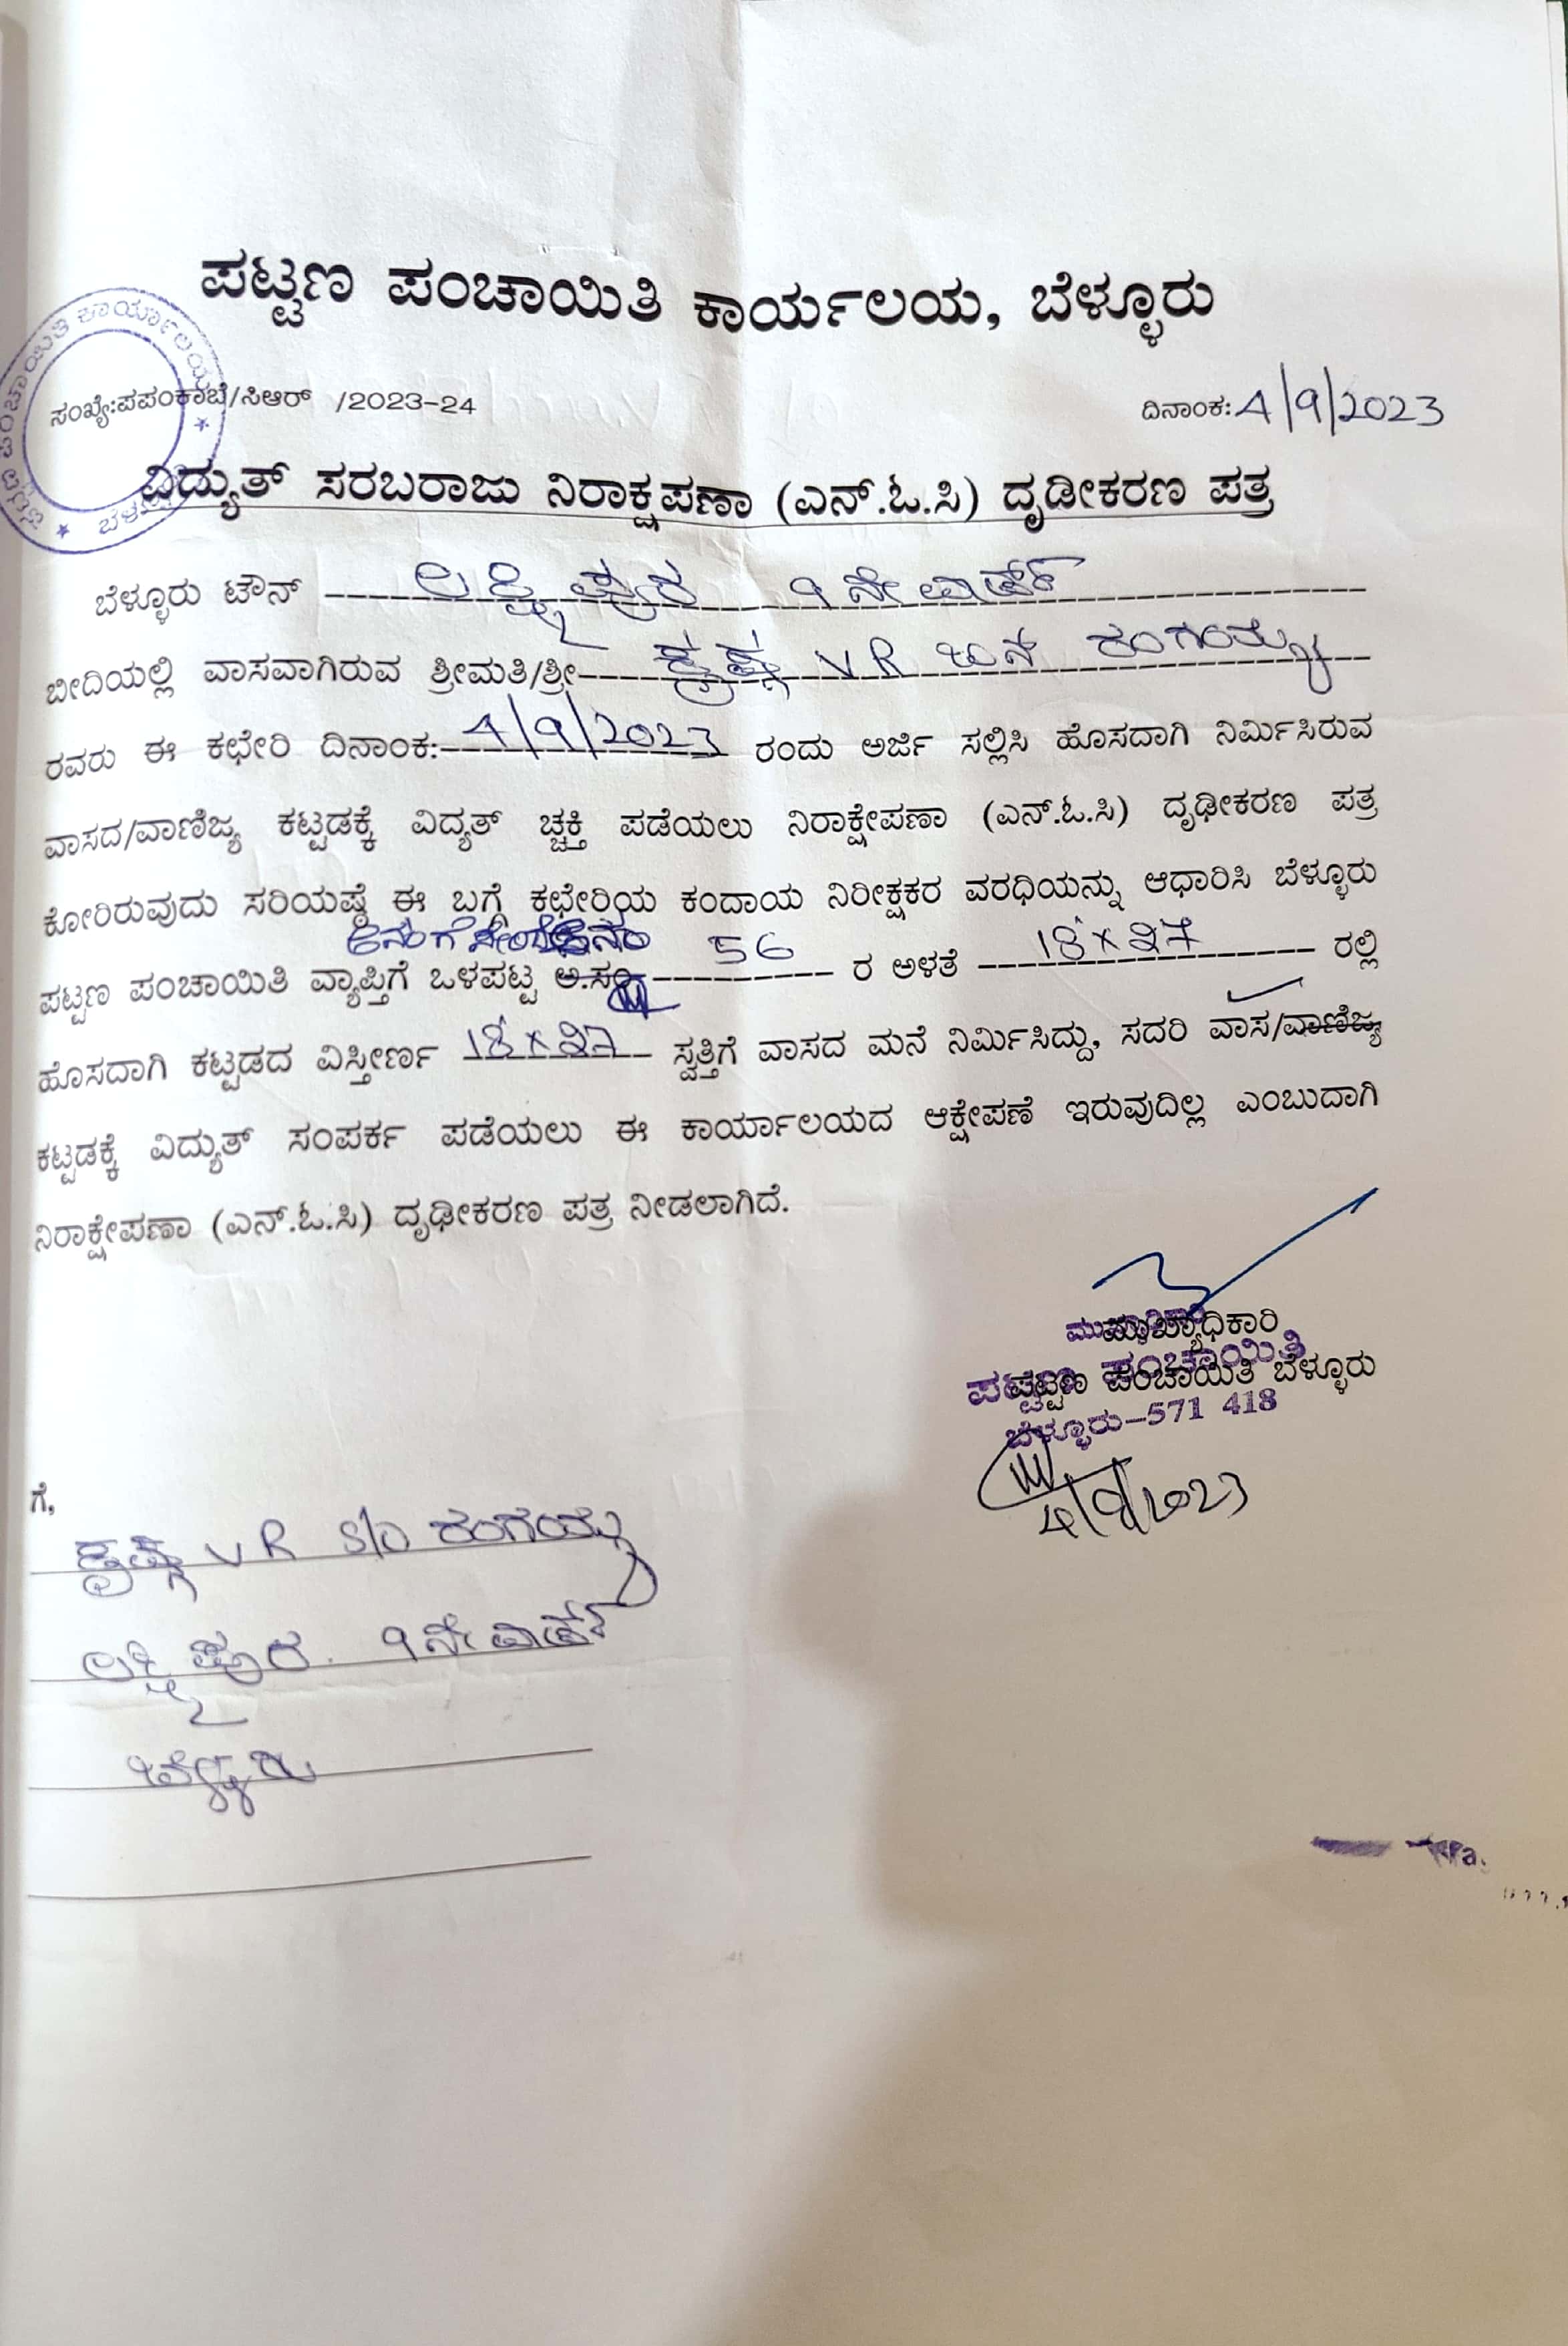 ಪಟ್ಟಣ ಪಂಚಾಯಿತಿ ಕಾರ್ಯಲಯ, ಬೆಳ್ಳೂರು
ಸಂಖ್ಯೆ:ಪಪಂಕಾಬೆ/ಸಿಆರ್ /2023-24
ದಿನಾಂಕ: 4/9/2023
ವಿದ್ಯುತ್ ಸರಬರಾಜು ನಿರಾಕ್ಷಪಣಾ (ಎನ್.ಓ.ಸಿ) ದೃಡೀಕರಣ ಪತ್ರ
ಬೆಳ್ಳೂರು ಟೌನ್ ಲಕ್ಷ್ಮಿಪುರ 9ನೇ ವಾರ್ಡ್
ಬೀದಿಯಲ್ಲಿ ವಾಸವಾಗಿರುವ ಶ್ರೀಮತಿ/ಶ್ರೀ ಕೃಷ್ಣ V R ಬಿನ್ ರಂಗಯ್ಯ
ರವರು ಈ ಕಛೇರಿ ದಿನಾಂಕ: 4/9/2023 ರಂದು ಅರ್ಜಿ ಸಲ್ಲಿಸಿ ಹೊಸದಾಗಿ ನಿರ್ಮಿಸಿರುವ
ವಾಸದ/ವಾಣಿಜ್ಯ ಕಟ್ಟಡಕ್ಕೆ ವಿದ್ಯತ್ ಚ್ಚಕ್ತಿ ಪಡೆಯಲು ನಿರಾಕ್ಷೇಪಣಾ (ಎನ್.ಓ.ಸಿ) ದೃಢೀಕರಣ ಪತ್ರ
ಕೋರಿರುವುದು ಸರಿಯಷ್ಠೆ ಈ ಬಗ್ಗೆ ಕಛೇರಿಯ ಕಂದಾಯ ನಿರೀಕ್ಷಕರ ವರಧಿಯನ್ನು ಆಧಾರಿಸಿ ಬೆಳ್ಳೂರು
ಪಟ್ಟಣ ಪಂಚಾಯಿತಿ ವ್ಯಾಪ್ತಿಗೆ ಒಳಪಟ್ಟ ಅ.ಸಂ 56 ರ ಅಳತೆ 18 x 27 ರಲ್ಲಿ
ಹೊಸದಾಗಿ ಕಟ್ಟಡದ ವಿಸ್ತೀರ್ಣ 18 x 27 ಸ್ವತ್ತಿಗೆ ವಾಸದ ಮನೆ ನಿರ್ಮಿಸಿದ್ದು, ಸದರಿ ವಾಸ/ವಾಣಿಜ್ಯ
ಕಟ್ಟಡಕ್ಕೆ ವಿದ್ಯುತ್ ಸಂಪರ್ಕ ಪಡೆಯಲು ಈ ಕಾರ್ಯಾಲಯದ ಆಕ್ಷೇಪಣೆ ಇರುವುದಿಲ್ಲ ಎಂಬುದಾಗಿ
ನಿರಾಕ್ಷೇಪಣಾ (ಎನ್.ಓ.ಸಿ) ದೃಢೀಕರಣ ಪತ್ರ ನೀಡಲಾಗಿದೆ.
ಮುಖ್ಯಾಧಿಕಾರಿ
ಪಟ್ಟಣ ಪಂಚಾಯಿತಿ ಬೆಳ್ಳೂರು
ಬೆಳ್ಳೂರು-571 418
4/9/2023
ಗೆ,
ಕೃಷ್ಣ V R S/O ರಂಗಯ್ಯ
ಲಕ್ಷ್ಮಿಪುರ. 9ನೇ ವಾರ್ಡ್
ಬೆಳ್ಳೂರು